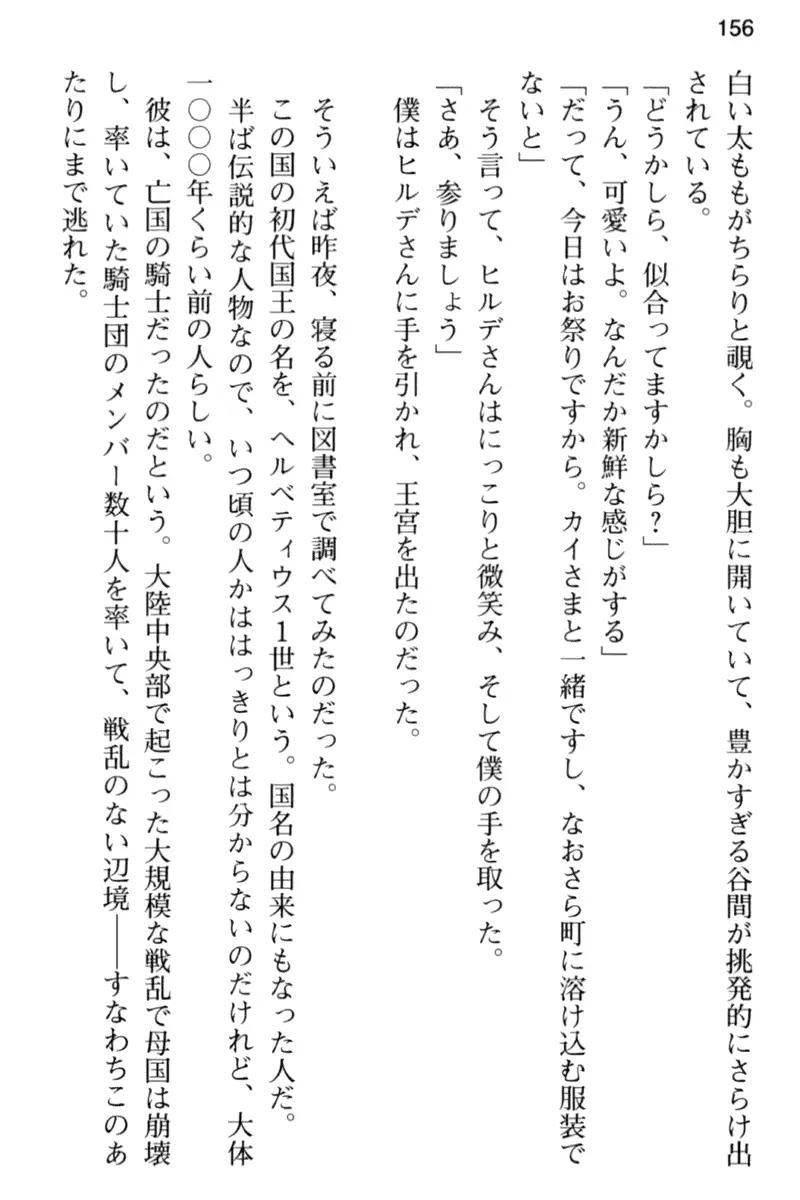 156
白い太ももがちらりと覗く。胸も大胆に開いていて、豊かすぎる谷間が挑発的にさらけ出
されている。
「どうかしら、似合ってますかしら？」
「うん、可愛いよ。なんだか新鮮な感じがする」
「だって、今日はお祭りですから。カイさまと一緒ですし、なおさら町に溶け込む服装で
ないと」
そう言って、ヒルデさんはにっこりと微笑み、そして僕の手を取った。
「さあ、参りましょう」
僕はヒルデさんに手を引かれ、王宮を出たのだった。
そういえば昨夜、寝る前に図書室で調べてみたのだった。
この国の初代国王の名を、ヘルベティウス１世という。国名の由来にもなった人だ。
半ば伝説的な人物なので、いつ頃の人かははっきりとは分からないのだけれど、大体
一〇〇〇年くらい前の人らしい。
彼は、亡国の騎士だったのだという。大陸中央部で起こった大規模な戦乱で母国は崩壊
し、率いていた騎士団のメンバー数十人を率いて、戦乱のない辺境――すなわちこのあ
たりにまで逃れた。